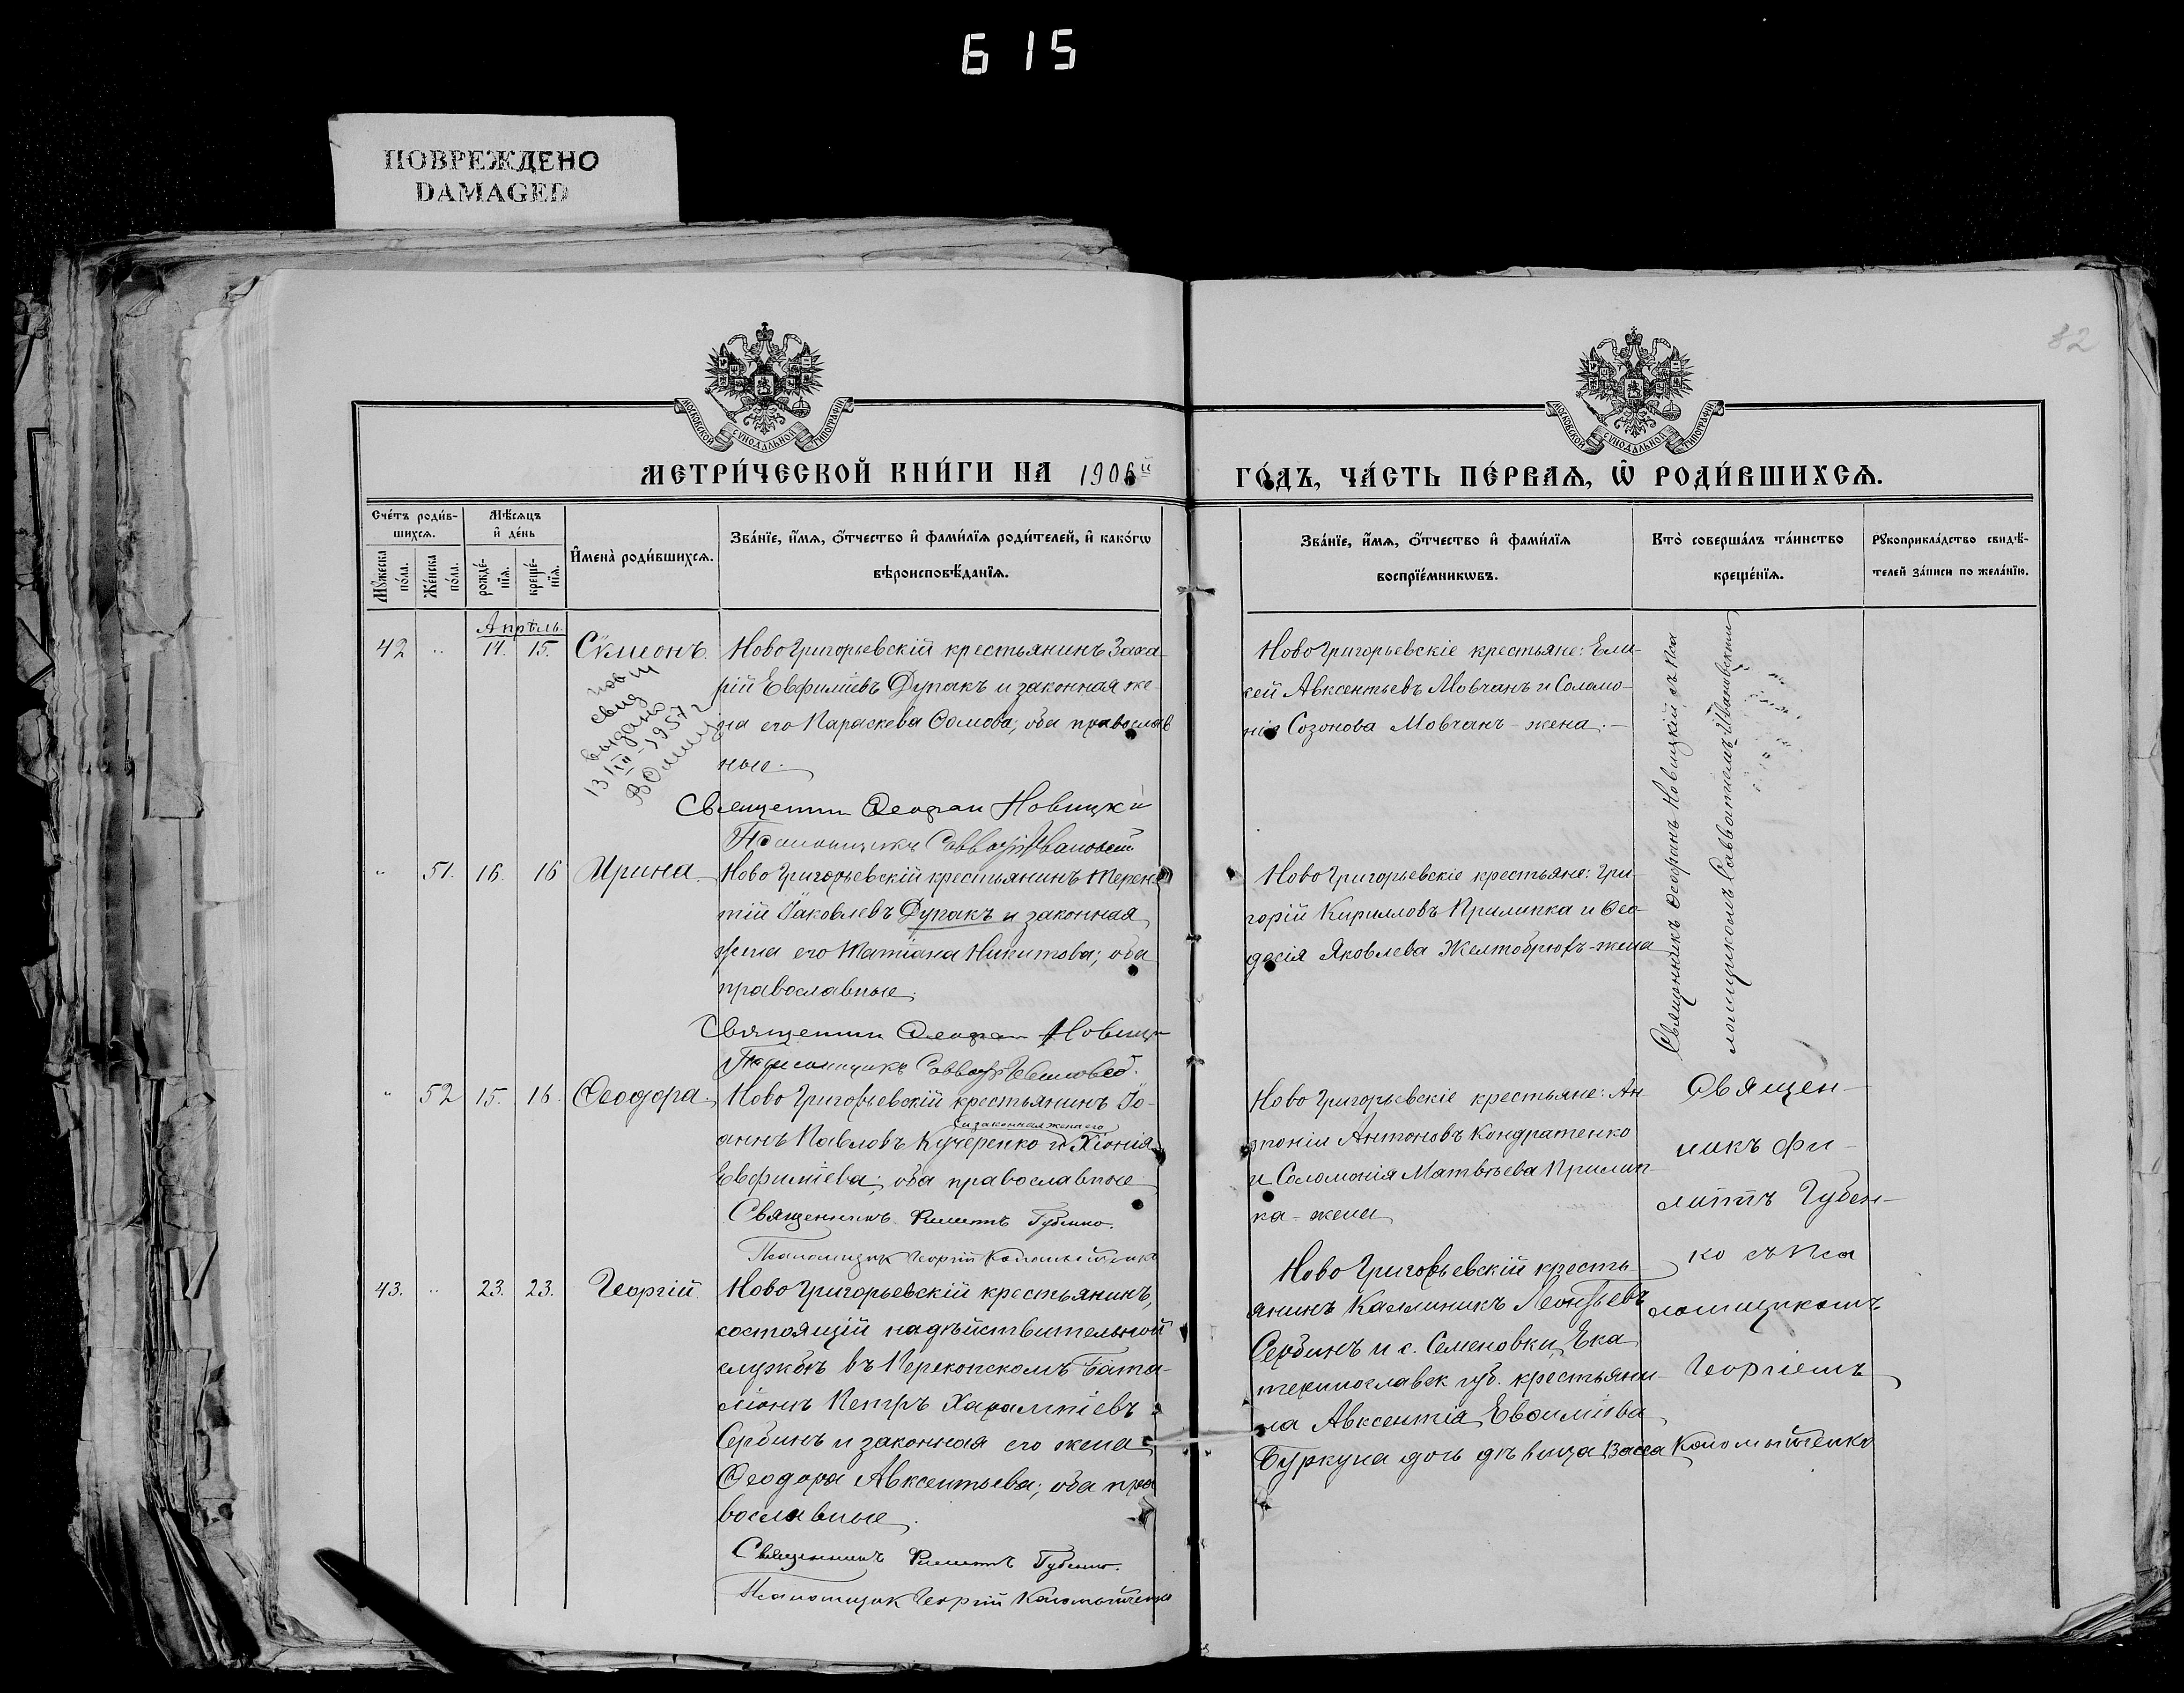 615
ПОВРЕЖДЕНО
DAMAGED
82
МОСКОВСКОЙ СУНОДАЛЬНОЙ ТИПОГРАФІИ
МОСКОВСКОЙ СУНОДАЛЬНОЙ ТИПОГРАФІИ
МЕТРИ́ЧЕСКОЙ КНИ́ГИ НА 1906й
ГО́ДЪ, ЧА́СТЬ ПЕ́РВАѦ, Ѡ҆ РОДИ́ВШИХСѦ.
Сче́тъ роди́в-
шихсѧ.
Мꙋ́жеска по́ла.
Же́нска по́ла.
Мѣ́сѧцъ
и҆ де́нь
рожде́-
нїѧ.
креще́-
нїѧ.
И҆мена̀ роди́вшихсѧ.
Зва́нїе, и҆́мѧ, ѻ҆́тчество и҆ фами́лїѧ роди́телей, и҆ како́гѡ
вѣроисповѣ́данїѧ.
Зва́нїе, и҆́мѧ, ѻ҆́тчество и҆ фами́лїѧ
воспрїе́мникѡвъ.
Кто̀ соверша́лъ та́инство
креще́нїѧ.
Рꙋкоприкла́дство свидѣ́-
телей за́писи по жела́нїю.
Апрѣль
42 " 14. 15. Сѵмеонъ.
НовоГригорьевскій крестьянинъ Заха-
рій Евфиміевъ Дупакъ и законная же-
на его Параскева Ѳомова; оба православ
ные.
свид
выдано
13/III-1957 г
Священник Ѳеофан Новицкій
Псаломщикъ Савватій Ивановскій
НовоГригорьевскіе крестьяне: Ели-
сей Авксентьевъ Мовчанъ и Соломо-
нія Созонова Мовчанъ - жена.
Священникъ Ѳеофанъ Новицкій съ пса
ломщикомъ Савватіемъ Ивановскимъ
" 51. 16. 16 Ирина.
НовоГригорьевскій крестьянинъ Терен-
тій Іаковлевъ Дупакъ и законная
жена его Татіана Никитова; оба
православные.
Священник Ѳеофан Новицк
Псаломщикъ Савватій Ивановск.
НовоГригорьевскіе крестьяне: Гри-
горій Кирилловъ Прилипка и Ѳео-
досія Яковлева Желтобрюхъ - жена
" 52 15. 16. Ѳеодора.
НовоГригорьевскій крестьянинъ Іо-
и законная жена его
аннъ Павловъ Кучеренко и Хіонія
Евфиміева; оба православные
Священникъ Филиппъ Губенко.
Псаломщик Георгій Коломыйченко
НовоГригорьевскіе крестьяне: Ан-
тоній Антоновъ Кондратенко
и Соломонія Матвѣева Прилип-
ка - жена
Священ-
никъ Фи-
липпъ Губен-
ко съ пса
ломщикомъ
Георгіемъ
Коломыйченко
43. " 23. 23. Георгій.
НовоГригорьевскій крестьянинъ,
состоящій на дѣйствительной
службѣ въ Перекопскомъ Бата-
ліонѣ Петръ Харалампіевъ
Сербинъ и законная его жена
Ѳеодора Авксентьева; оба пра
вославные.
Священникъ Филиппъ Губенко.
Псаломщик Георгій Коломыйченко
НовоГригорьевскій кресть
янинъ Каллиникъ Леонтьевъ
Сербинъ и с. Семеновки, Ека
теринославск губ. крестьяни-
на Авксентія Евѳиміева
Буркуна дочь дѣвица Васса